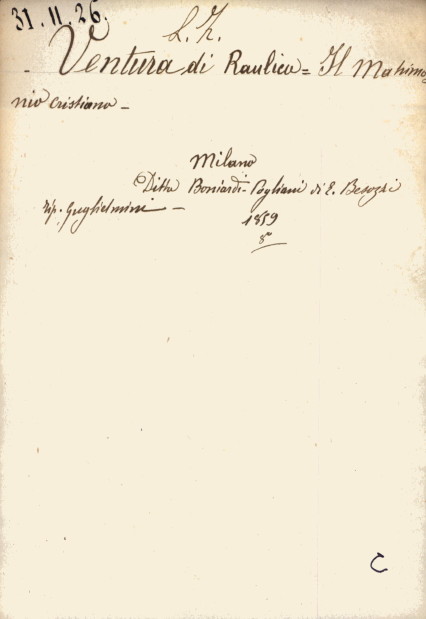 31.11.26.
L. Z.
- Ventura di Raulica = Il Matrimo
nio Cristiano -
Milano
Ditta Boniardi-Pogliani di E. Besozzi
Tip. Guglielmini -
1859
8º
C